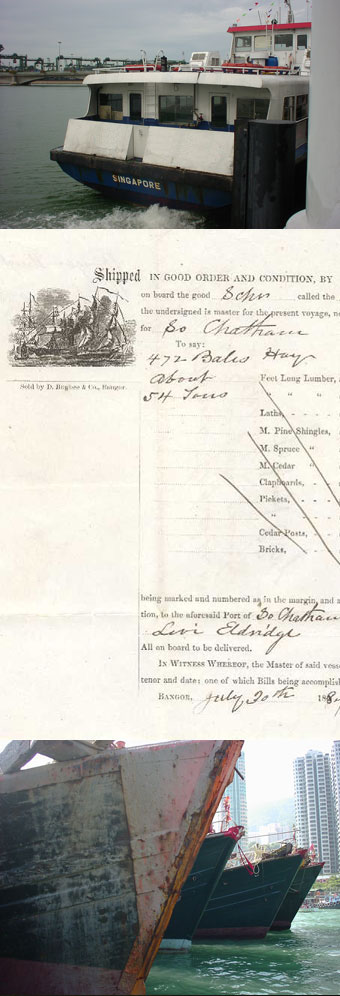 SINGAPORE
Shipped IN GOOD ORDER AND CONDITION, BY
on board the good Schr called the
the undersigned is master for the present voyage,
for So Chatham
To say:
472 Bales Hay
About Feet Long Lumber,
54 Tons " " "
Laths, - - - -
M. Pine Shingles, - -
M. Spruce " -
M. Cedar "
Clapboards, - -
Pickets, - - -
"
Cedar Posts, - -
Bricks, - -
Sold by D. Bugbee & Co., Bangor.
being marked and numbered as in the margin, and
tion, to the aforesaid Port of So Chatham
Levi Eldridge
All on board to be delivered.
IN WITNESS WHEREOF, the Master of said
tenor and date: one of which Bills being
BANGOR, July 30th 188